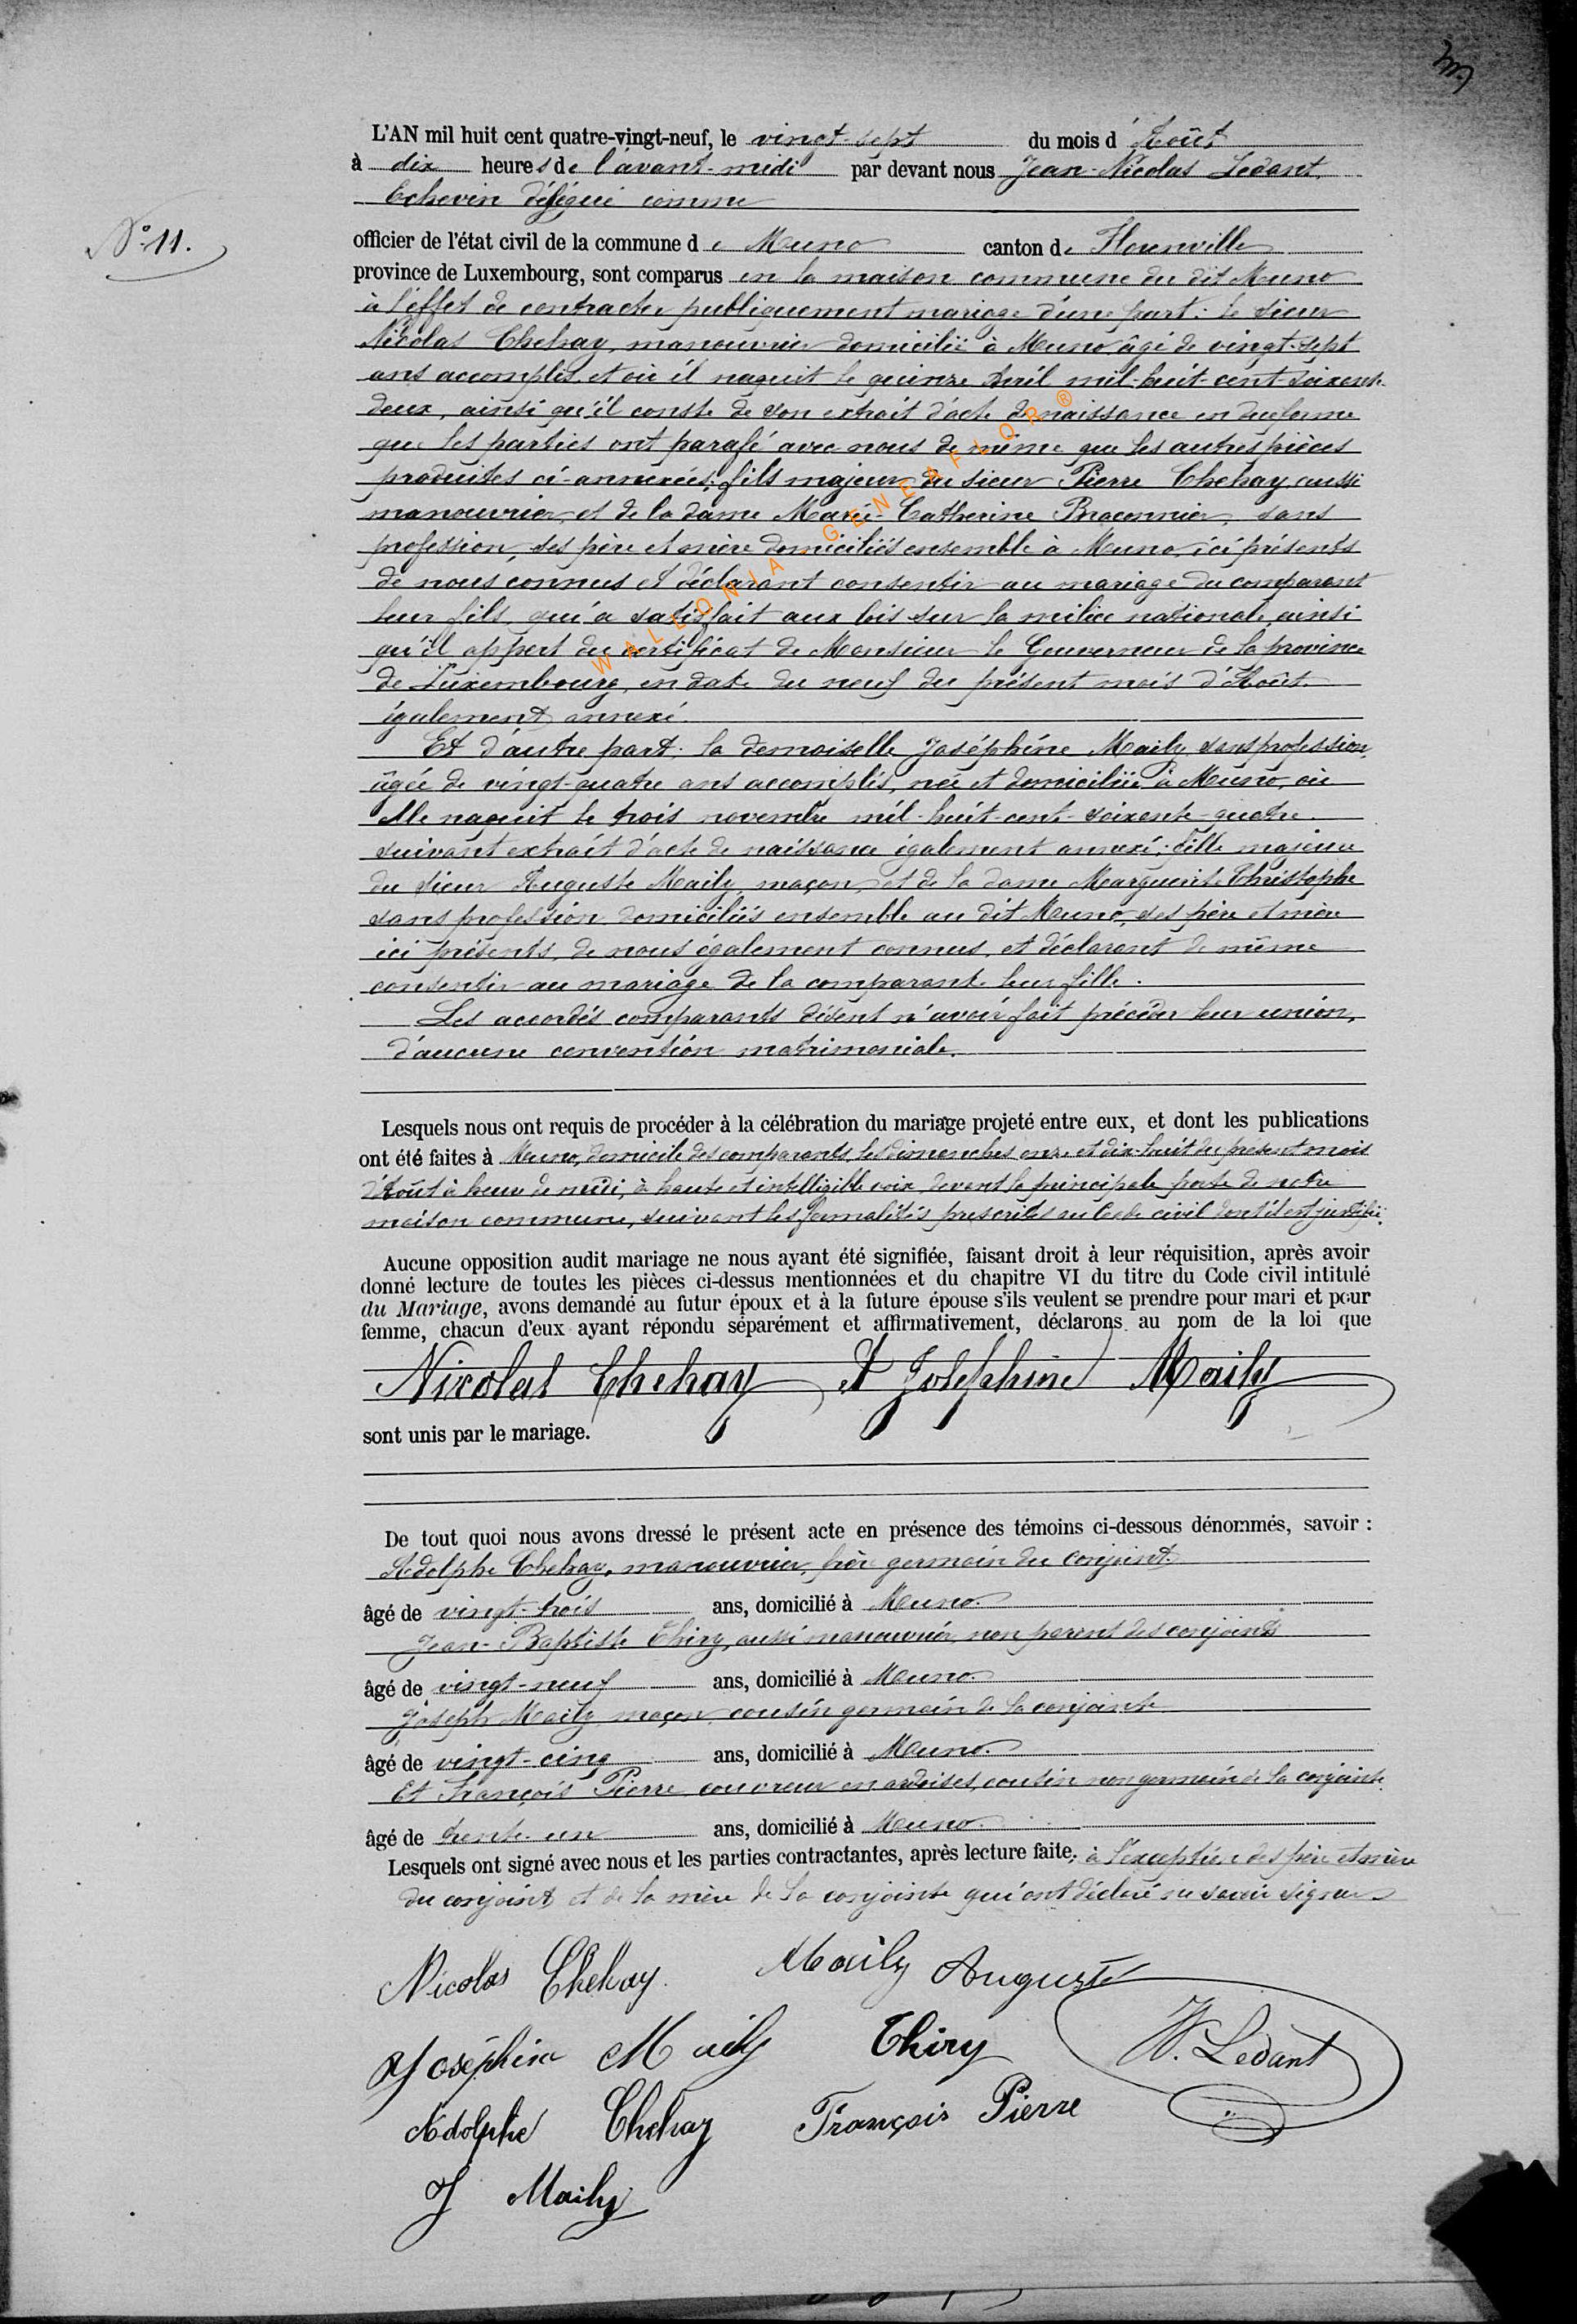 L'AN mil huit cent quatre-vingt-neuf, le vingt-sept du mois d'Août
à dix heures de l'avant-midi par devant nous Jean-Nicolas Ledant,
Echevin délégué comme
N° 11.
officier de l'état civil de la commune de Muno canton de Florenville
province de Luxembourg, sont comparus en la maison commune du dit Muno
à l'effet de contracter publiquement mariage d'une part: le sieur
Nicolas Chehay, manouvrier domicilié à Muno, âgé de vingt-sept
ans accomplis, et où il naquit le quinze Avril mil-huit-cent-soixante-
deux, ainsi qu'il conste de son extrait d'acte de naissance en due forme
que les parties ont parafé avec nous de même que les autres pièces
produites ci-annexées; fils majeur du sieur Pierre Chehay, aussi
manouvrier, et de la dame Marie-Catherine Braconnier, sans
profession, ses père et mère domiciliés ensemble à Muno, ici présents
de nous connus et déclarant consentir au mariage du comparant
leur fils, qui a satisfait aux lois sur la milice nationale, ainsi
qu'il appert du certificat de Monsieur le Gouverneur de la province
de Luxembourg, en date du neuf du présent mois d'Août.
également annexé.
Et d'autre part: la demoiselle Joséphine Maily, sans profession,
âgée de vingt-quatre ans accomplis, née et domiciliée à Muno, où
elle naquit le trois novembre mil-huit-cent-soixante-quatre.
suivant extrait d'acte de naissance également annexé; fille majeure
du sieur Auguste Maily, maçon, et de la dame Marguerite Christophe
sans profession domiciliés ensemble au dit Muno, ses père et mère
ici présents, de nous également connus, et déclarant de même
consentir au mariage de la comparante leur fille.
Les accordés comparants disent n'avoir fait précéder leur union,
d'aucune convention matrimoniale.
Lesquels nous ont requis de procéder à la célébration du mariage projeté entre eux, et dont les publications
ont été faites à Muno, domicile des comparants, les dimanches onze et dix-huit du présent mois
d'Août à heure de midi, à haute et intelligible voix, devant la principale porte de notre
maison commune, suivant les formalités prescrites au Code civil dont il est justifié.
Aucune opposition audit mariage ne nous ayant été signifiée, faisant droit à leur réquisition, après avoir
donné lecture de toutes les pièces ci-dessus mentionnées et du chapitre VI du titre du Code civil intitulé
du Mariage, avons demandé au futur époux et à la future épouse s'ils veulent se prendre pour mari et pour
femme, chacun d'eux ayant répondu séparément et affirmativement, déclarons au nom de la loi que
Nicolas Chehay et Joséphine Maily
sont unis par le mariage.
De tout quoi nous avons dressé le présent acte en présence des témoins ci-dessous dénommés, savoir :
Adolphe Chehay, manouvrier, frère germain du conjoint.
âgé de vingt-trois ans, domicilié à Muno.
Jean-Baptiste Thiry, aussi manouvrier, non parent des conjoints
âgé de vingt-neuf ans, domicilié à Muno.
Joseph Maily maçon, cousin germain de la conjointe
âgé de vingt-cinq ans, domicilié à Muno.
Et François Pierre couvreur en ardoises, cousin non germain de la conjointe.
âgé de trente-un ans, domicilié à Muno.
Lesquels ont signé avec nous et les parties contractantes, après lecture faite, à l'exception des père et mère
du conjoint et de la mère de la conjointe qui ont déclaré ne savoir signer
Nicolas Chehay. Maily Auguste
Joséphine Maily Thiry N. Ledant
Adolphe Chehay François Pierre
J Maily
WALLONIA - GENEAFLOR ®